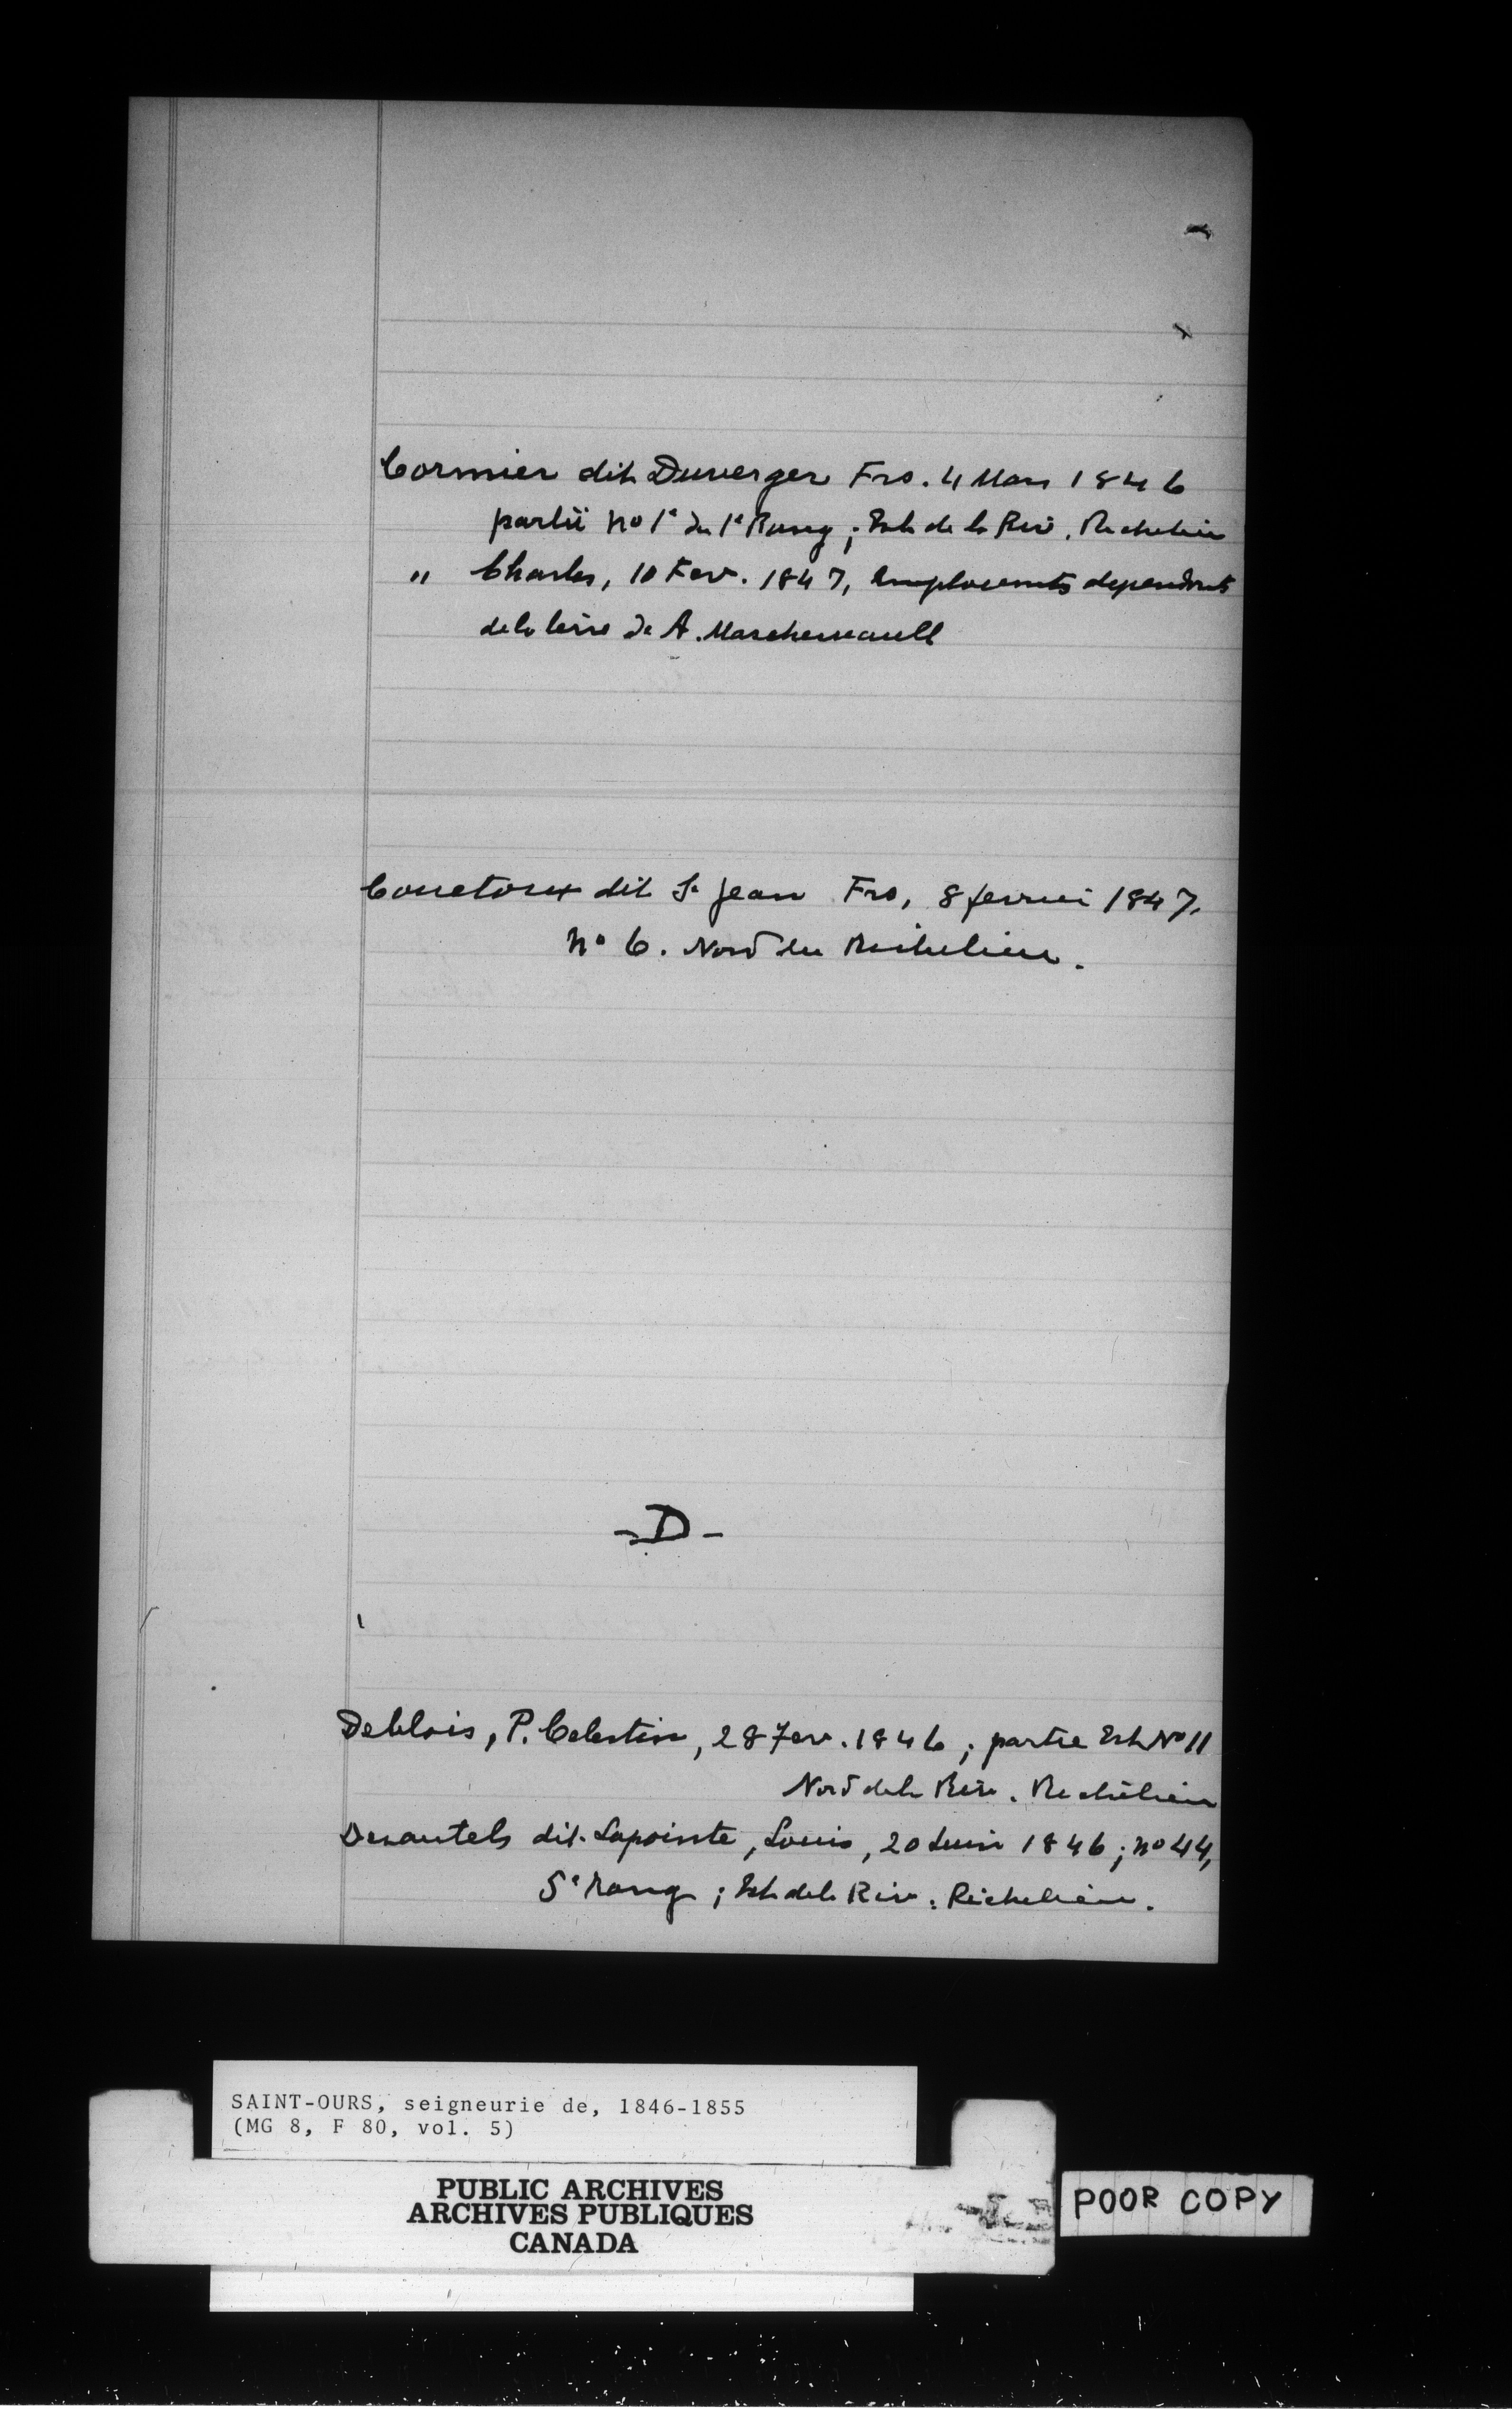 Cormier dit Duverger Frs. 4 Mars 1846
partie no 1e du 1e Rang ; Est de la Riv. Richelieu
" Charles, 10 Fev. 1847, Emplacements dependants
de la terre de A. Marchesseault
dit St Jean Frs, 8 fevrier 1847.
No 6. Nord du Richelieu.
-D-
Deblois, P. Celestin, 28 Fev. 1846 ; partie Est No 11
Nord de la Riv. Richelieu
Desautels dit Lapointe, Louis, 20 Juin 1846 ; no 44,
5e rang ; Est de la Riv. Richelieu.
SAINT-OURS, seigneurie de, 1846-1855
(MG 8, F 80, vol. 5)
PUBLIC ARCHIVES
ARCHIVES PUBLIQUES
CANADA
POOR COPY